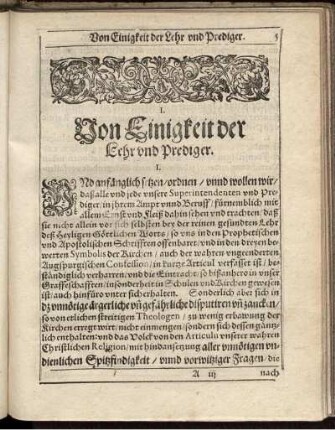 Von Einigkeit der Lehr vnd Prediger. 5
I.
Von Einigkeit der
Lehr vnd Prediger.
I.
VNd anfänglich setzen / ordnen / vnnd wollen wir /
daß alle vnd jede vnsere Superintendenten vnd Pre-
diger / in jhrem Ampt vnnd Beruff / fürnemblich mit
allem Ernst vnd Fleiß dahin sehen vnd trachten / daß
sie nicht allein vor sich selbsten bey der reinen gesundten Lehr
deß Heyligen Göttlichen Worts / so vns in den Prophetischen
vnd Apostolischen Schrifften offenbaret / vnd in den dreyen be-
werten Symbolis der Kirchen / auch der wahren vngeenderten
Augspurgischen Confession / in kurtze Articul verfasset ist / be-
ständiglich verharren / vnd die Eintracht / so bißanhero in vnser
Graffeschafften / insonderheit in Schulen vnd Kirchen gewesen
ist / auch hinfüro vnter sich erhalten. Sonderlich aber sich in
dz vnnötige ärgerliche vn̄ gefährliche disputiren vn̄ zancken /
so von etlichen streitigen Theologen / zu wenig erbawung der
Kirchen erregt wirt / nicht einmengen / sondern sich dessen gäntz-
lich enthalten / vnd das Volck von den Articuln vnserer wahren
Christlichen Religion / mit hindansetzung aller vnnötigen vn-
dienlichen Spitzfindigkeit / vnnd vorwitziger Fragen / die
A iij nach